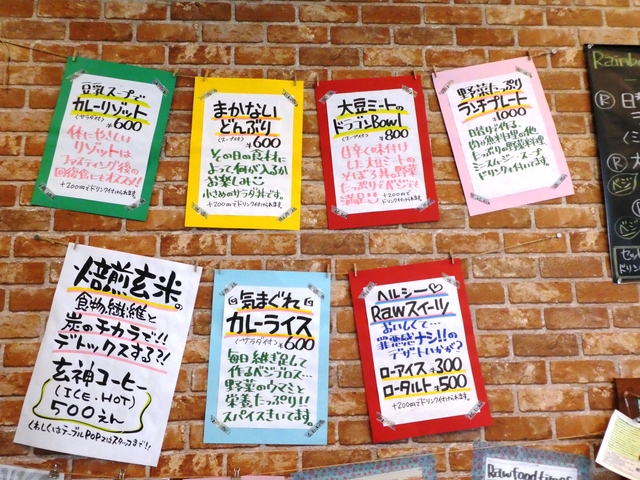 豆乳スープで
カレーリゾット
(サラダ付) ¥600
体にやさしい
リゾットは
ファスティング後の
回復食にもオススメ!!
+200円でドリンク付けられます。
まかない
どんぶり
(スープ付) ¥600
その日の食材に
よって何が入るか
お楽しみ
小さめのサラダ丼です。
+200円でドリンク付けられます。
大豆ミートの
ドラゴンBowl
(スープ付) ¥800
甘辛く味付け
した大豆ミートの
そぼろ丼。野菜
たっぷりでベジでも
満足
+200円で
ドリンク付けられます。
野菜たっぷり
ランチプレート
¥1000
日替りで作る
肉or魚料理の他
たっぷりの野菜料理
ミスムージースープ
ドリンク付いてます。
焙煎玄米の
食物繊維と
炭のチカラで!!
デトックスする?!
玄神コーヒー
(ICE・HOT)
500えん
(くわしくはテーブルPOP又はスタッフまで!!)
気まぐれ
カレーライス
(サラダ付) ¥600
毎日継ぎ足して
作るベジブロス…
野菜のウマミと
栄養たっぷり!!
スパイスきいてます。
ヘルシー♡
Rawスイーツ
おいしくて…
罪悪感ナシ!!の
デザートいかが?
ローアイス ¥300
ロータルト ¥500
+200円でドリンク付けられます。
Rainbo
Raw food times